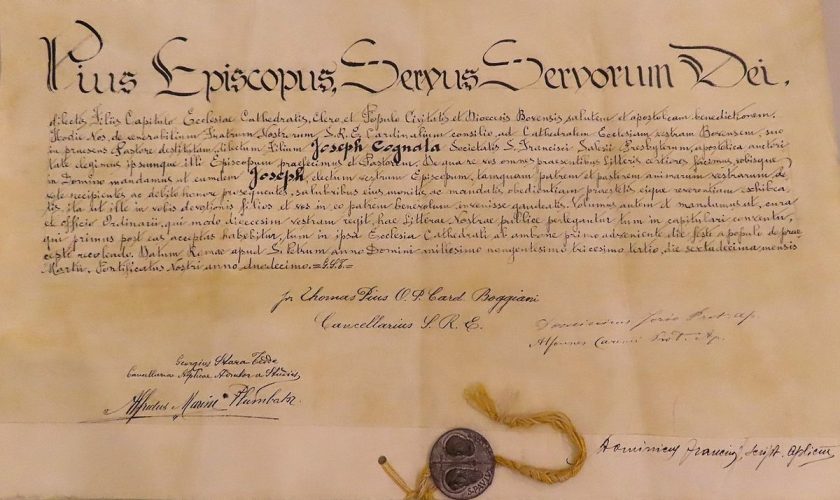 Pius Episcopus, Servus Servorum Dei,
dilectis Filiis Capitulo Ecclesiae Cathedralis, Clero, et Populo Civitatis et Dioecesis Bovensis salutem et apostolicam benedictionem.
Hodie Nos, de venerabilium Fratrum Nostrorum S. R. E. Cardinalium consilio, ad Cathedralem Ecclesiam vestram Bovensem, suo
in praesens Pastore destitutam, dilectum Filium Joseph Cognata Societatis S. Francisci Salesii Presbyterum, apostolica auctori
tate legimus ipsumque illi Episcopum praefecimus et Pastorem. Qua re vos omnes praesentibus Litteris certiores facimus, vobisque
in Domino mandamus ut eumdem Joseph, electum vestrum Episcopum, tamquam patrem et pastorem animarum vestrarum, de
vote recipientes ac debito honore prosequentes, salutaribus eius monitis ac mandatis obedientiam praestetis eique reverentiam exhibea
tis, ita ut ille in vobis devotionis filios et vos in eo patrem benevolum invenisse gaudeatis. Volumus autem et mandamus ut, cura
et officio Ordinarii, qui modo dioecesim vestram regit, hae Litterae Nostrae publice perlegantur tum in capitulari conventu,
qui primus post eas acceptas habebitur, tum in ipsa Ecclesia Cathedrali ab ambone primo adveniente die festo a populo de prae
cepto recolendo. Datum Romae apud S. Petrum anno Domini millesimo nongentesimo tricesimo tertio, die sextadecima mensis
Martii, Pontificatus Nostri anno duodecimo.
fr Thomas Pius O. P. Card. Boggiani
Cancellarius S. R. E.
Dominicus Jorio Prot. ap.
Alfonsus Carinci Prot. Ap.
Georgius Stara Tedde
Cancellariae Aplicae Adiutor a Studiis
Alfredus Marini Plumbator
Dominicus Francini, Script. Aplicus
S. PAVLVS